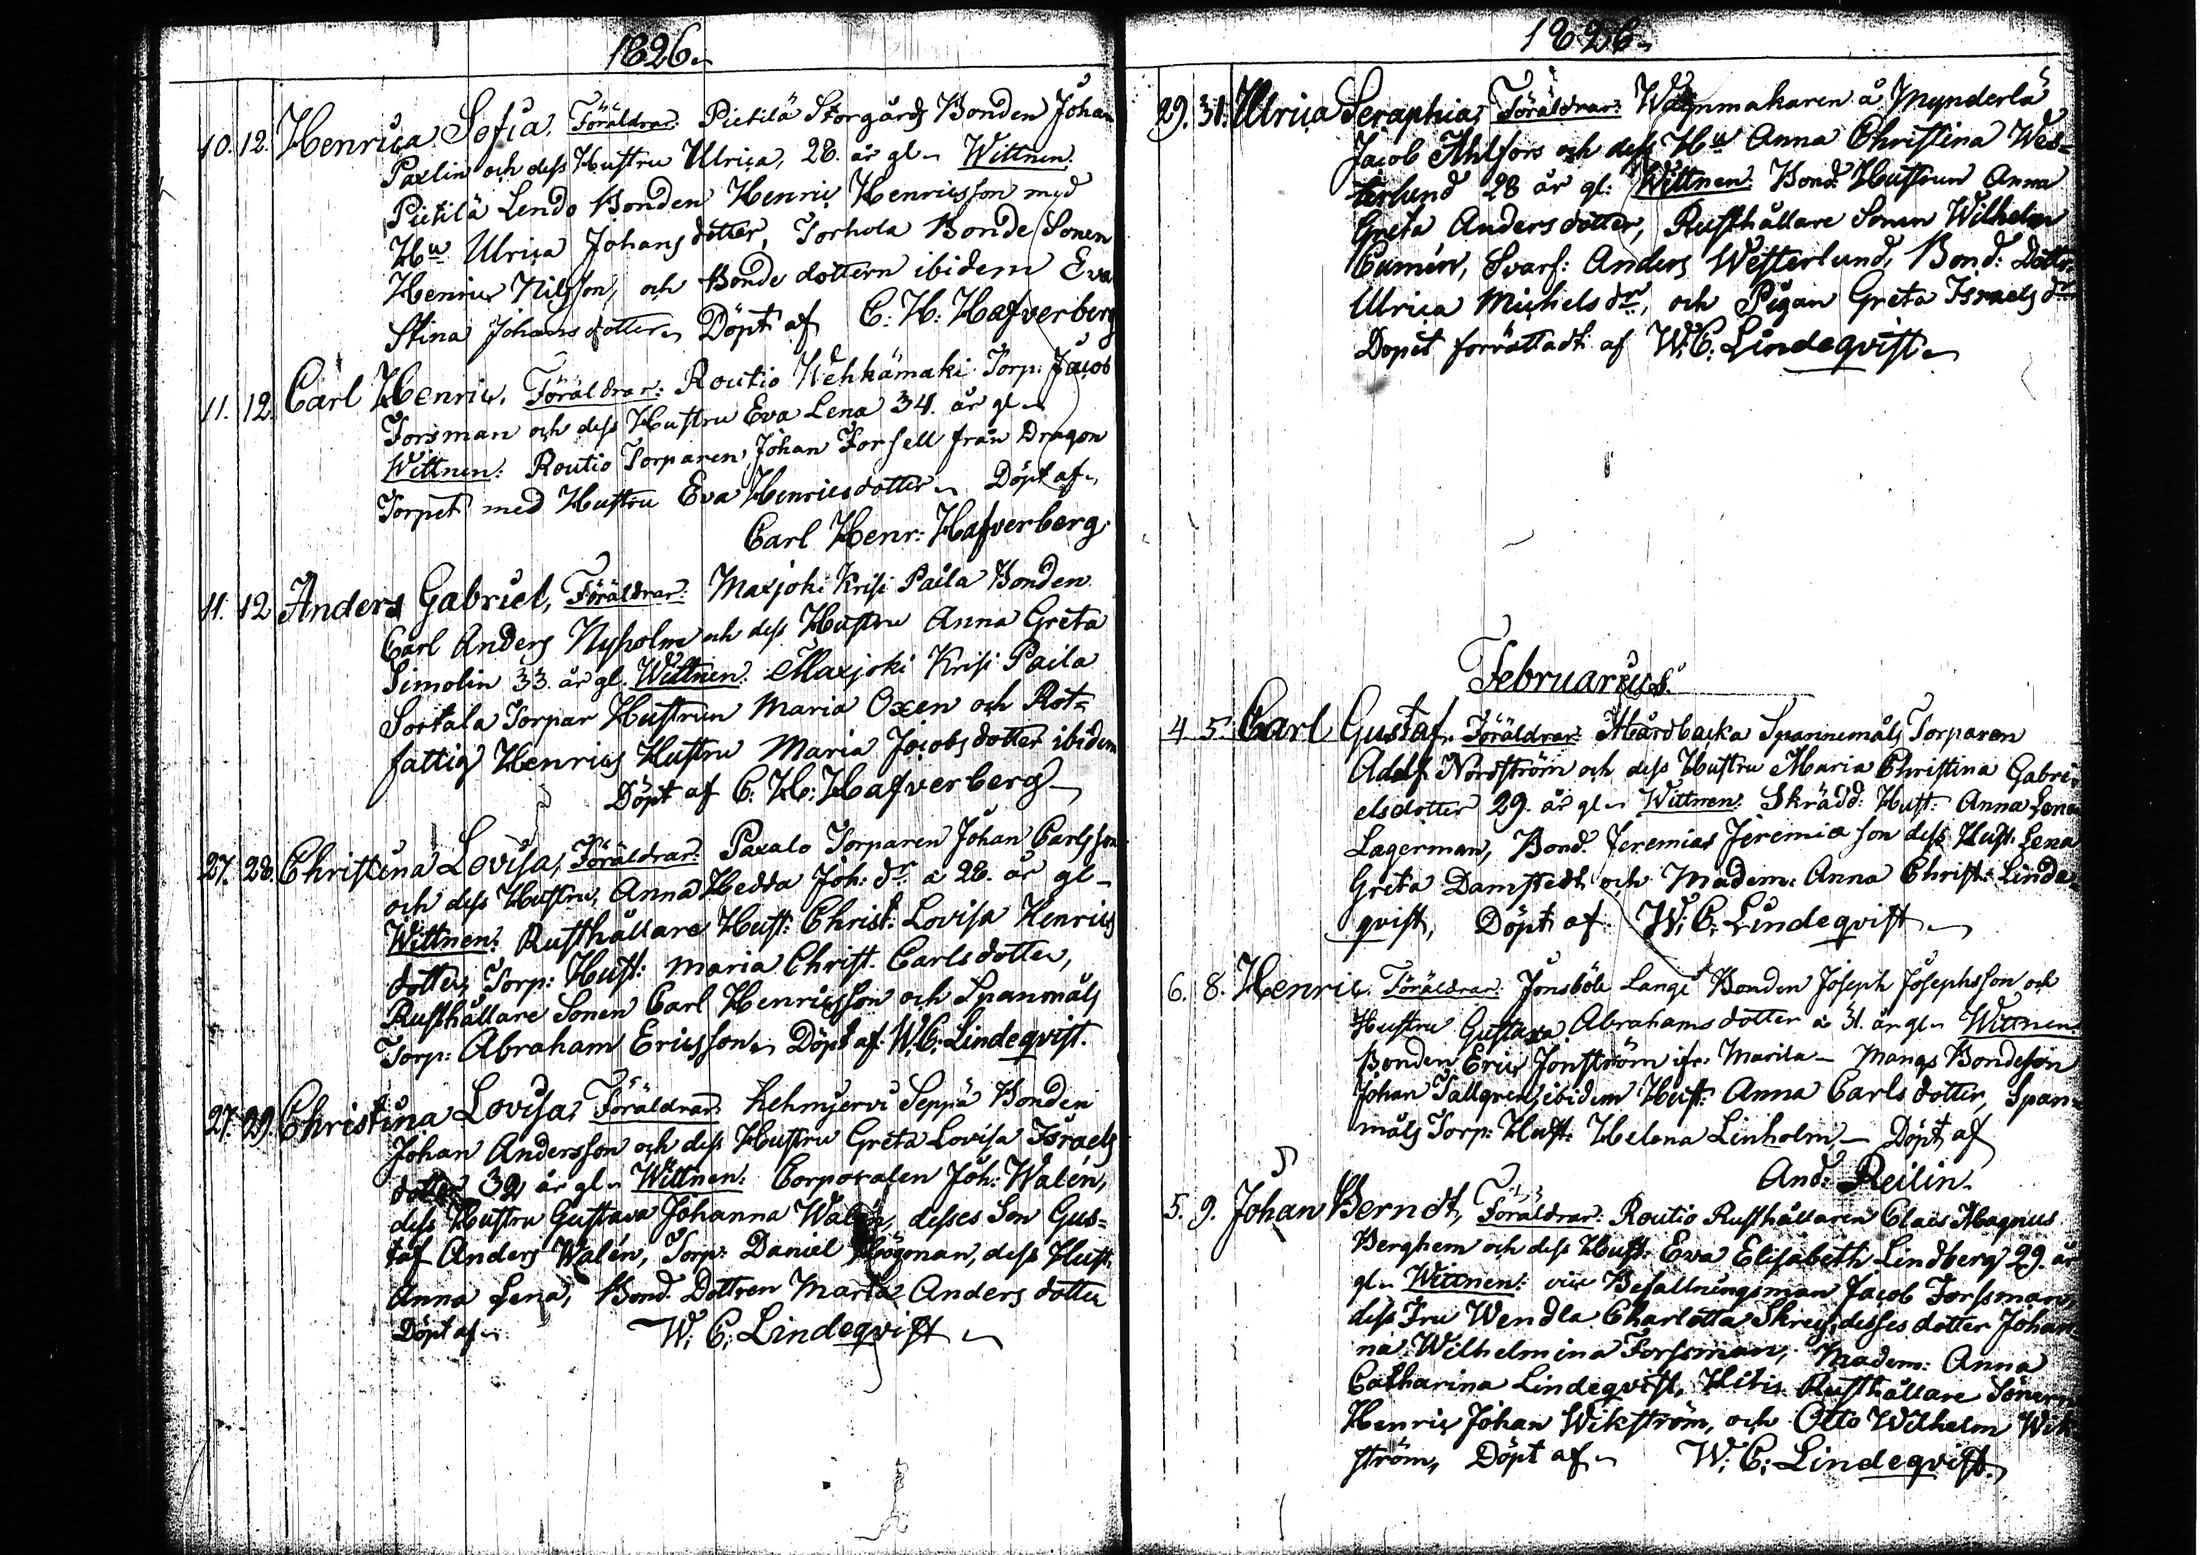 1826.
10. 12. Henrica Sofia, Föräldrar: Pietilä Storgårds Bonden Johan
Paxlin och dess Hustru Ulrica, 28. år gl. Wittnen:
Pietilä Lendo Bonden Henric Henricsson med
Hu Ulrica Johansdotter, Torhola Bonde Sonen
Henric Nilsson, och Bonde dottern ibidem Eva
Stina Johansdotter. Döpt af C. H: Hafverberg
11. 12. Carl Henric. Föräldrar: Routio Wehkämaki Torp: Jacob
Torsman och dess Hustru Eva Lena 34. år gl.
Wittnen: Routio Torparen Johan Forsell från Dragon
Torpet med Hustru Eva Henricsdotter. Döpt af.
Carl Henr: Hafverberg.
11. 12 Anders Gabriel, Föräldrar: Marjoki Krisi Paila Bonden
Carl Anders Nyholm och dess Hustru Anna Greta
Simolin 33. år gl. Wittnen: Marjoki Krisi Paila
Sortala Torpar Hustrun Maria Oxen och Rot=
fattig Henrics Hustru Maria Jacobsdotter ibidem
Döpt af C. H: Hafverberg
27. 28. Christina Lovisa, Föräldrar: Paxalo Torparen Johan Carlsson
och dess Hustru, Anna Hedda Joh: dr a 28. år gl.
Wittnen: Rusthållare Hust: Christ: Lovisa Henrics
dotter, Torp: Hust: Maria Christ. Carlsdotter,
Rusthållare Sonen Carl Henricsson och Spanmåls
Torp: Abraham Ericsson. Döpt af W. C. Lindeqvist.
27. 29. Christina Lovisa, Föräldrar: Lehmjervi Seppä Bonden
Johan Andersson och dess Hustru Greta Lovisa Israels
dotter 32 år gl. Wittnen: Corporalen Joh: Walén,
dess Hustru Gustava Johanna Walén, desses Son Gus=
taf Anders Walén, Torp: Daniel Högman, dess Hust.
Anna Lena, Bond. Dottren Marta Anders dotter
Döpt af. W. C. Lindeqvist.
1826.
29. 31. Ulrica Seraphia, Föräldrar: Wagnmakaren å Mynderlä
Jacob Ahlfors och dess Hu Anna Christina Wes=
terlund 28 år gl: Wittnen: Bond: Hustrun Anna
Greta Andersdotter, Rusthållare Sonen Wilhelm
Cumén, Svarf: Anders Westerlund, Bond: Dottr:
Ulrica Michelsdr, och Pigan Greta Israelsdr
Dopet förrättadt af W: C: Lindeqvist.
Februarius.
4 5. Carl Gustaf. Föräldrar: Hårdbacka Spannemåls Torparen
Adolf Nordström och dess Hustru Maria Christina Gabri=
elsdotter 29. år gl. Wittnen: Skrädd: Hust: Anna Lena
Lagerman, Bond. Jeremias Jeremiasson dess Hust. Lena
Greta Damstedt och Madem: Anna Christ: Linde=
qvist, Döpt af W. C. Lindeqvist.
6. 8. Henric. Föräldrar: Jonsböle Lange Bonden Joseph Josephsson och
Hustru Gustava Abrahamsdotter a 31. år gl. Wittnen:
Bonden Eric Jonström ifr: Marila. Mangs Bondeson
Johan Tallqren, ibidem Hust: Anna Carlsdotter, Span=
måls Torp: Hust: Helena Linholm. Döpt af
And: Reilin.
5. 9. Johan Berndt, Föräldrar: Routio Rusthållaren Claes Magnus
Berghem och dess Hust: Eva Elisabeth Lindberg 29. år
gl. Wittnen: vice Befallningsman Jacob Forssman,
dess Fru Wendla Charlotta Skreg, desses dotter Johan=
na Wilhelmina Forssman, Madem: Anna
Catharina Lindeqvist, Hitis Rusthållare Sönern
Henric Johan Wikström, och Otto Wilhelm Wik
ström, Döpt af. W. C. Lindeqvist.